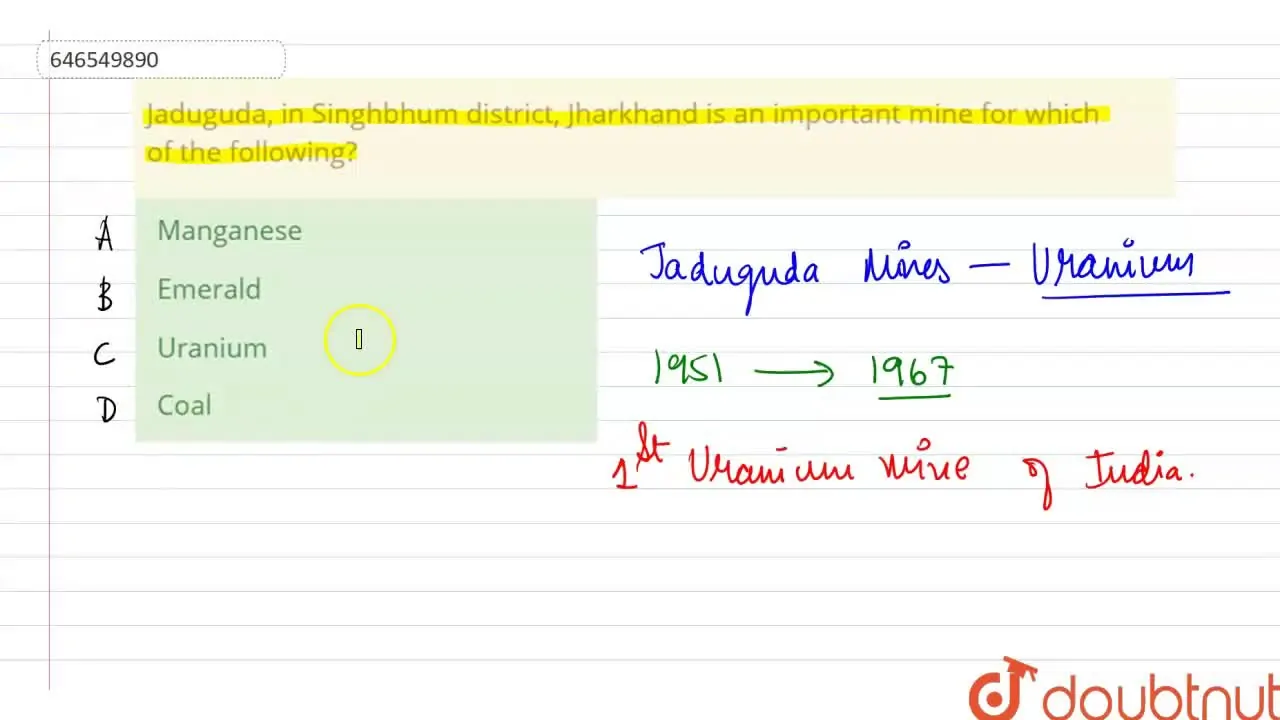 646549890
Jaduguda, in Singhbhum district, Jharkhand is an important mine for which
of the following?
A Manganese
B Emerald
C Uranium
D Coal
Jaduguda Mines — Uranium
1951 → 1967
1st Uranium mine of India.
doubtnut